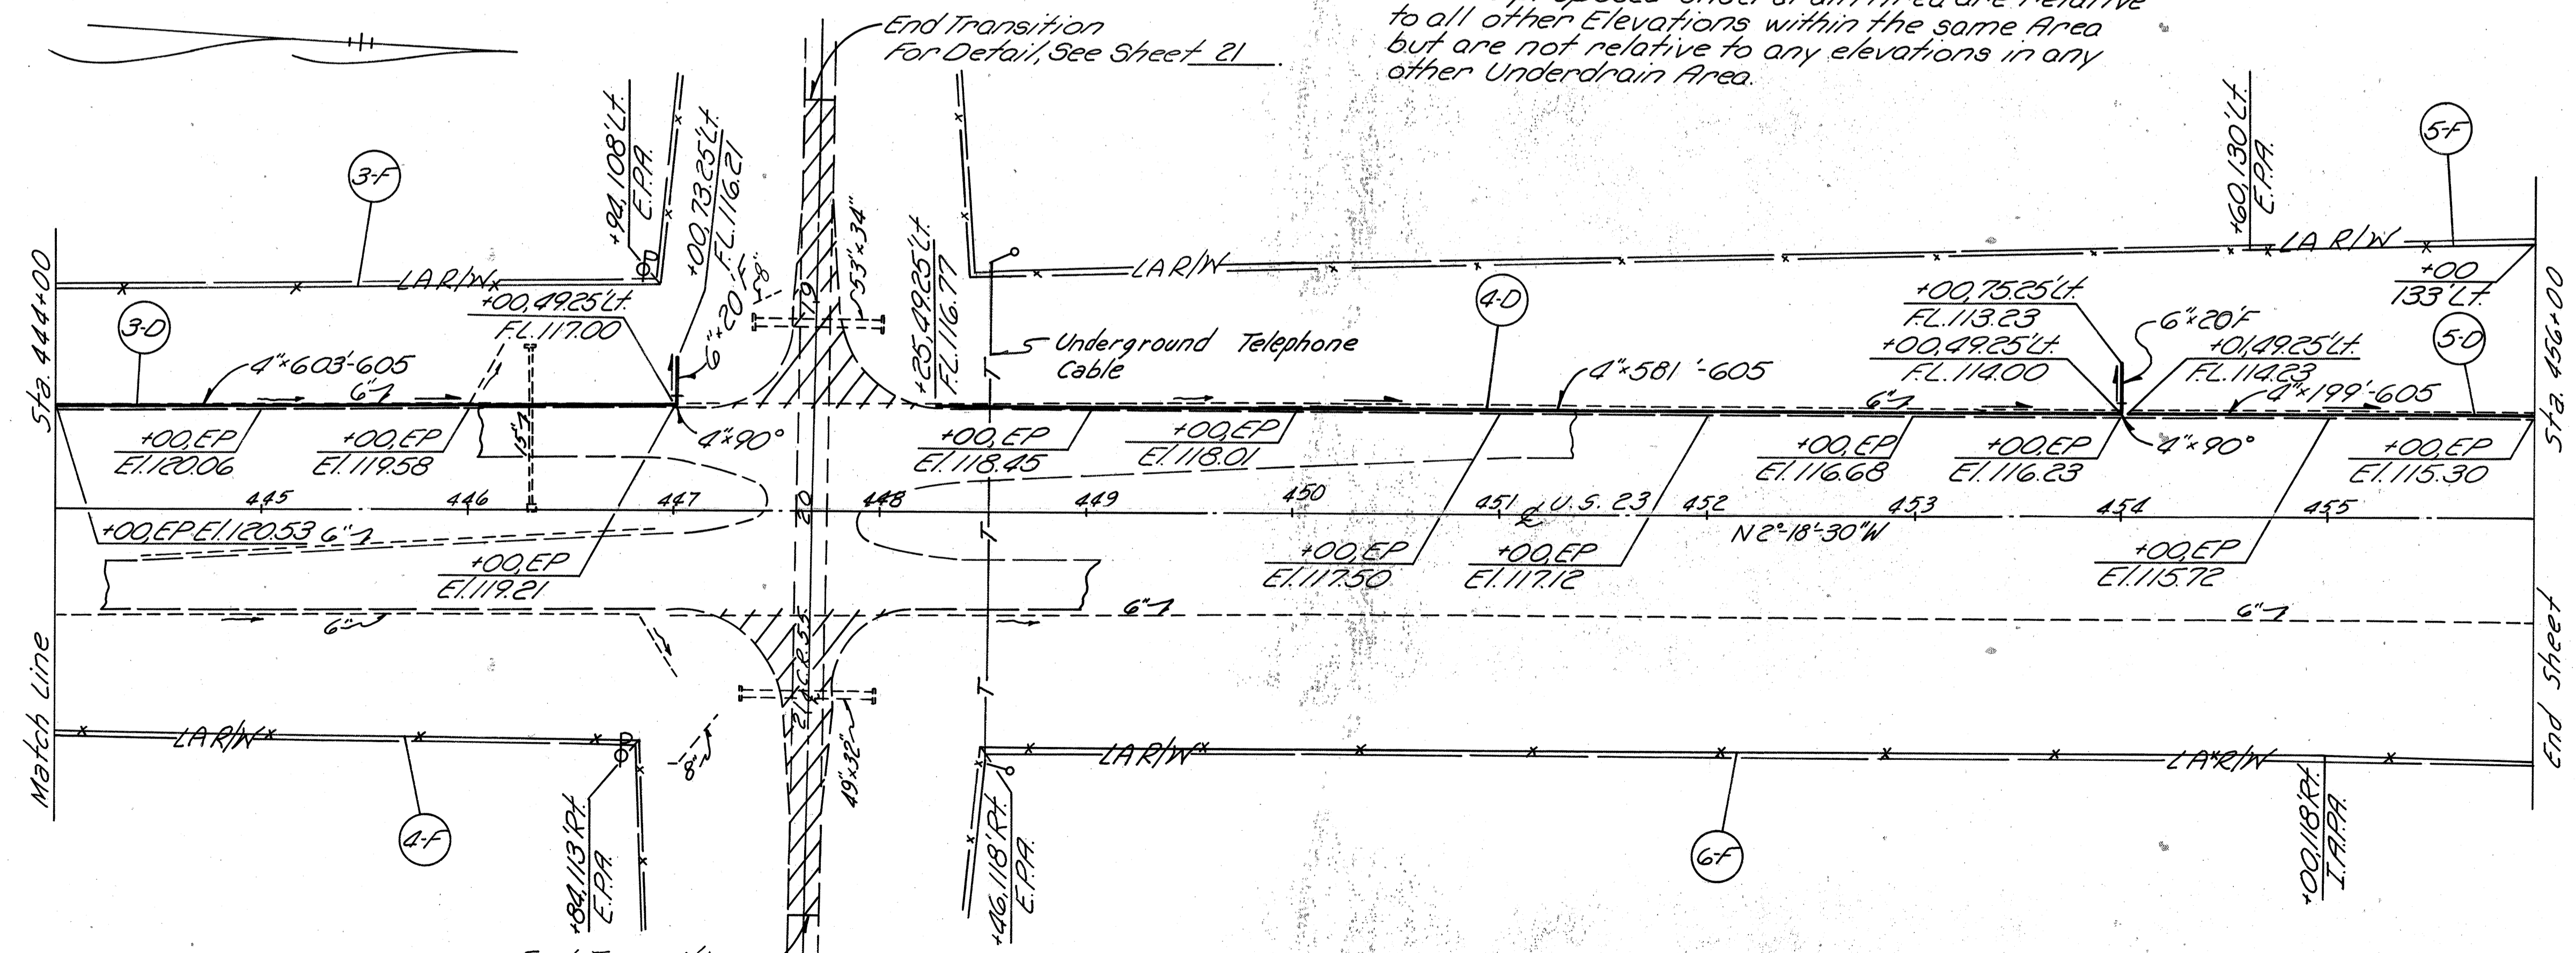 End Transition
For Detail, See Sheet 21.
are relative
to all other Elevations within the same Area
but are not relative to any elevations in any
other Underdrain Area.
+94, 108' Lt.
E.P.A.
+00, 73.25' Lt.
F.L. 116.21
+60, 130' Lt.
E.P.A.
3-F
5-F
6"x20'F
8"
53"x34"
LA R/W
LA R/W
LA R/W
+00
133' Lt.
Sta. 444+00
3-D
+00, 49.25' Lt.
F.L. 117.00
179
+25, 49.25' Lt.
F.L. 116.77
Underground Telephone
Cable
4-D
+00, 75.25' Lt.
F.L. 113.23
6"x20'F
+00, 49.25' Lt.
F.L. 114.00
+01, 49.25' Lt.
F.L. 114.23
5-D
Sta. 456+00
4"x603'-605
6"
T
4"x581'-605
6"
4"x199'-605
+00, EP
El. 120.06
+00, EP
El. 119.58
15"
4"x90°
+00, EP
El. 118.45
+00, EP
El. 118.01
+00, EP
El. 116.68
+00, EP
El. 116.23
4"x90°
+00, EP
El. 115.30
445
446
447
20
448
449
450
451
℄ U.S. 23
452
453
454
455
N 2°-18'-30" W
+00, EP El. 120.53
6"
T
+00, EP
El. 119.21
+00, EP
El. 117.50
+00, EP
El. 117.12
+00, EP
El. 115.72
6"
6"
6"
T
Match Line
End Sheet
LA R/W
8"
49"x32"
LA R/W
LA R/W
4-F
+84, 113' Rt.
E.P.A.
+46, 118' Rt.
E.P.A.
6-F
+00, 118' Rt.
I.A.P.A.